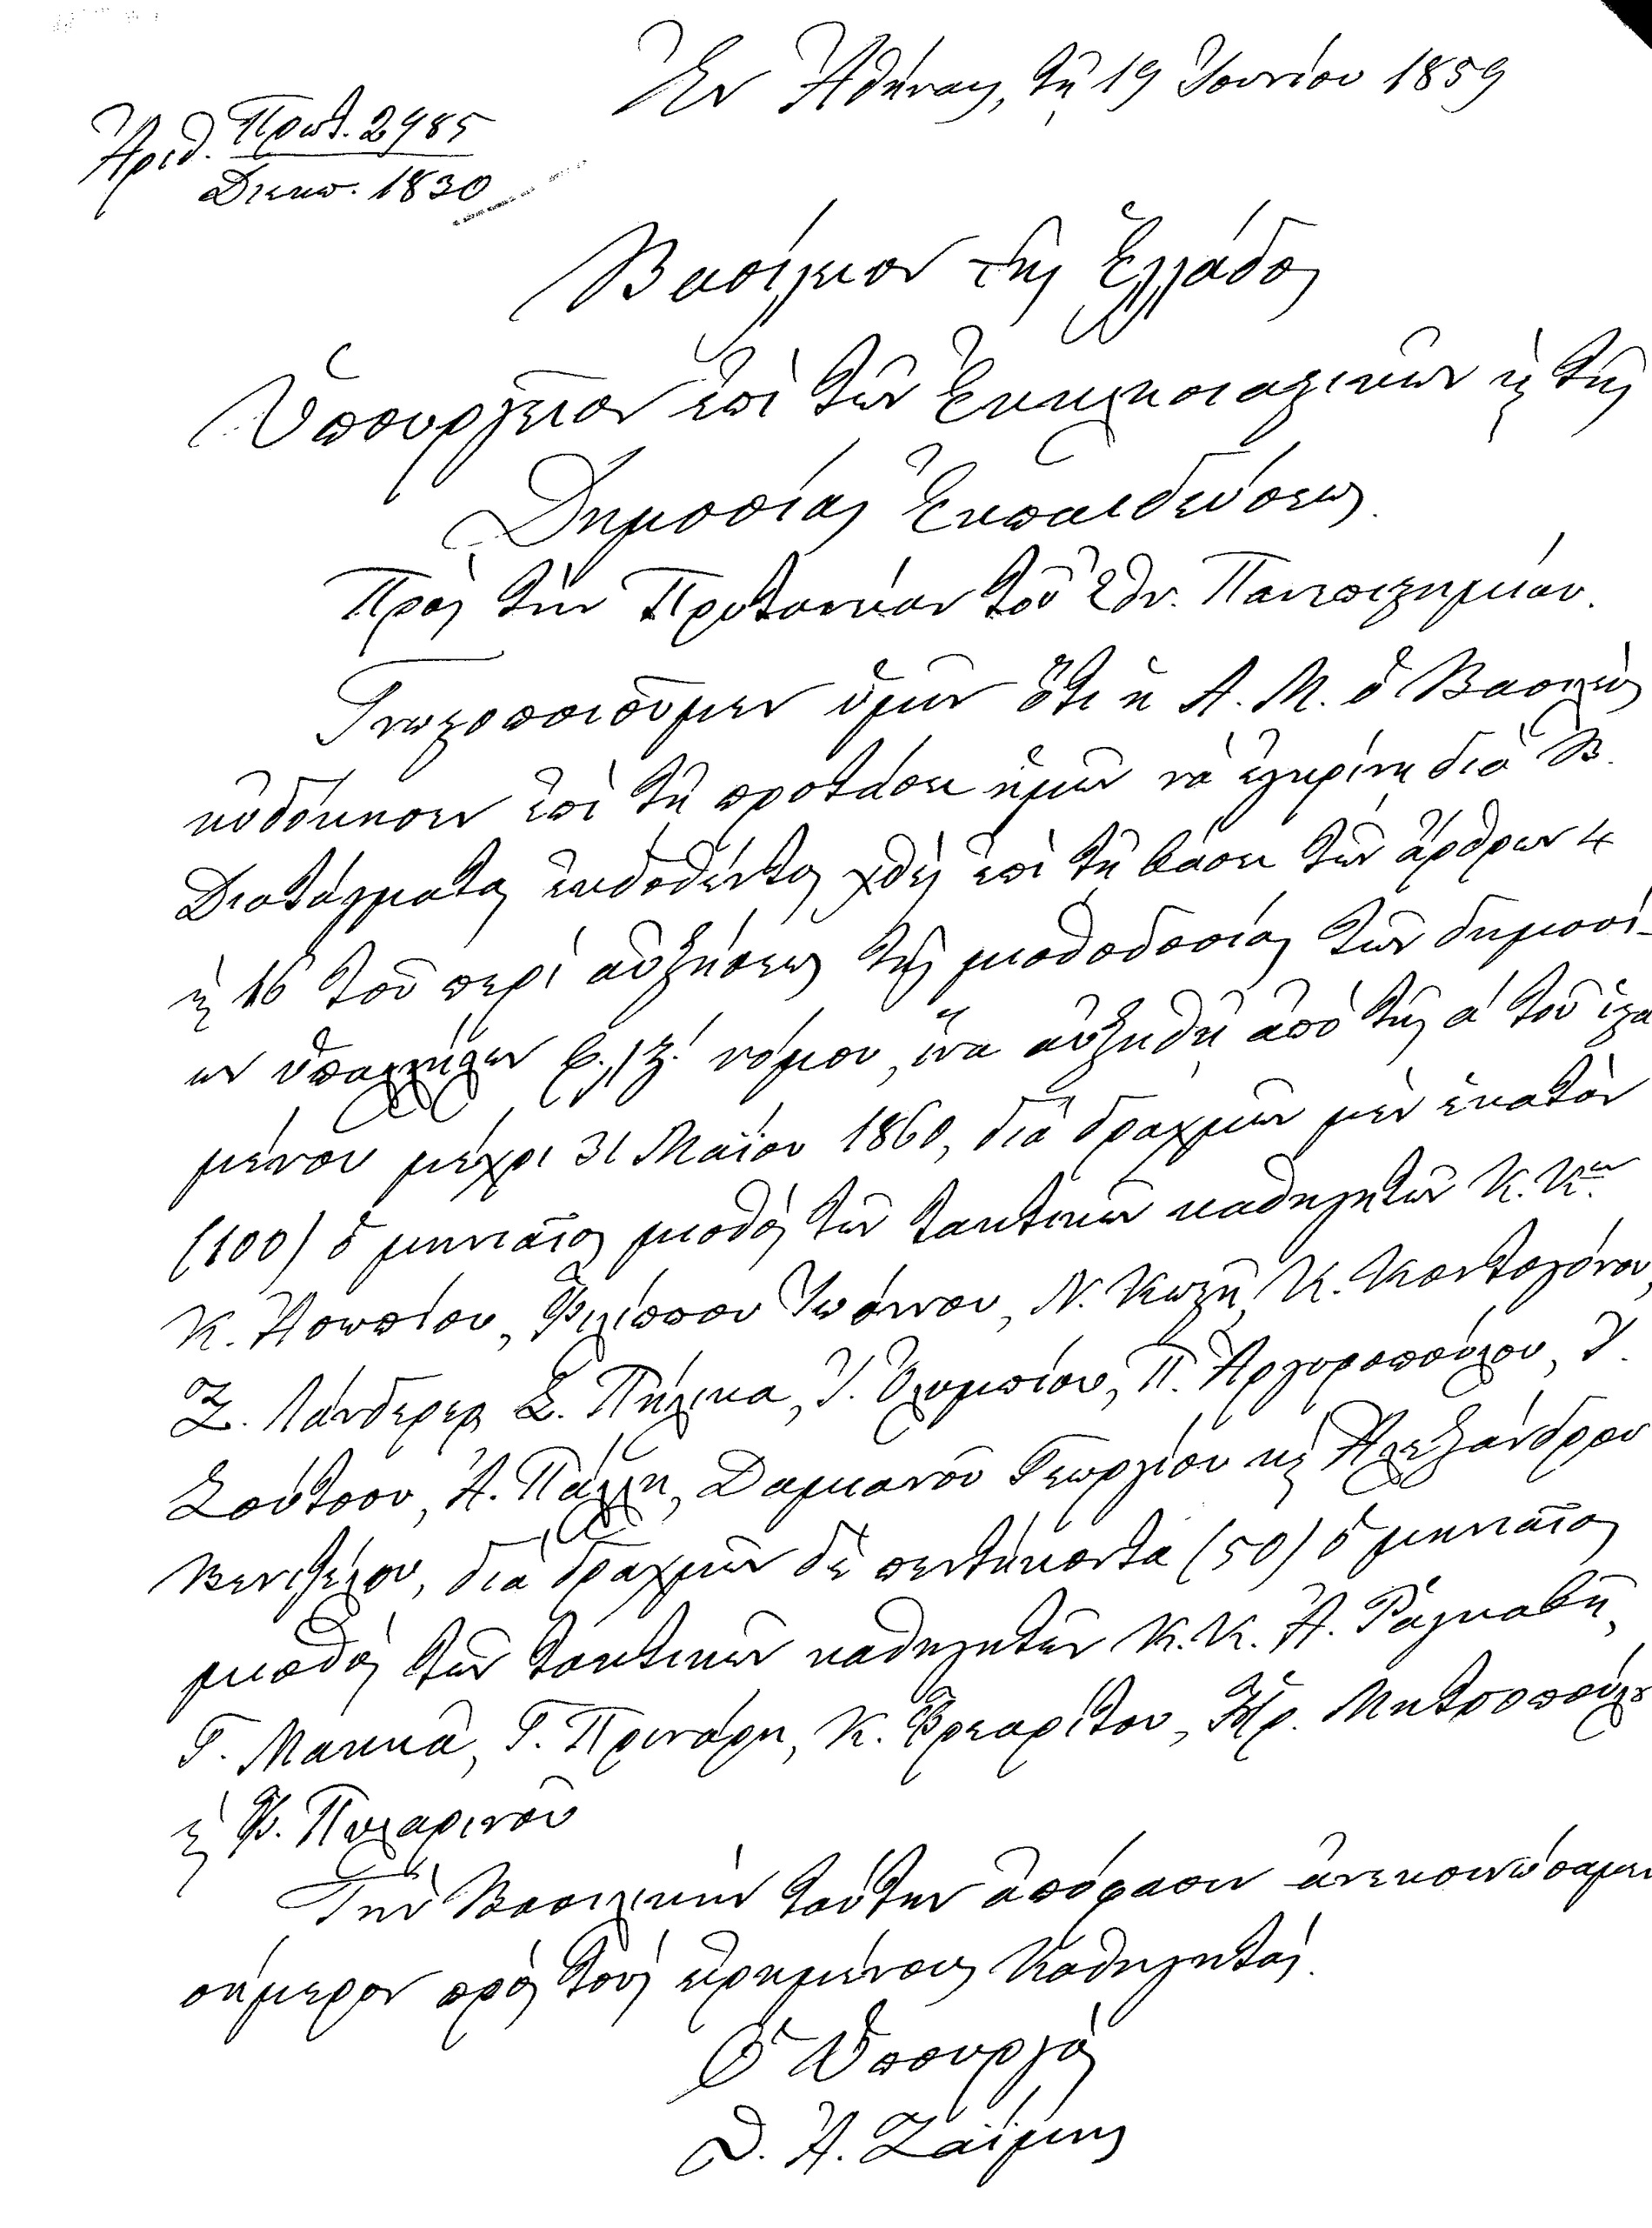 Ἐν Ἀθήναις, τῇ 19 Ἰουνίου 1859
Ἀριθ. Πρωτ. 2985
Διεκπ. 1830
Βασίλειον τῆς Ἑλλάδος
Ὑπουργεῖον ἐπὶ τῶν Ἐκκλησιαστικῶν κ τῆς
Δημοσίας Ἐκπαιδεύσεως.
Πρὸς τὴν Πρυτανείαν τοῦ Ἐθν. Πανεπιστημείου.
Γνωστοποιοῦμεν ὑμῖν ὅτι ἡ Α. Μ. ὁ Βασιλεὺς
ηὐδόκησεν ἐπὶ τῇ προτάσει ἡμῶν νὰ ἐγκρίνῃ διὰ Β.
Διατάγματος ἐκδοθέντος χθὲς ἐπὶ τῇ βάσει τῶν ἄρθρων 4
κ 16 τοῦ περὶ αὐξήσεως τῆς μισθοδοσίας τῶν δημοσί-
ων ὑπαλλήλων φ,ζ! νόμου, ἵνα αὐξηθῇ ἀπὸ τῆς ά τοῦ ἱστα
μένου μέχρι 31 Μαΐου 1860, διὰ δραχμῶν μὲν ἑκατὸν
(100) ὁ μηνιαῖος μισθὸς τῶν τακτικῶν καθηγητῶν Κ. Κων
Κ. Ἀσωπίου, Φιλίππου Ἰωάννου, Ν. Κωστῆ, Κ. Κοντογόνου,
Ξ. Λάνδερερ, Σ. Πήλικα, Ἰ. Ὀλυμπίου, Π. Ἀργυροπούλου, Ἰ.
Σούτσου, Ἀ. Πάλλη, Δαμιανοῦ Γεωργίου κὶ Ἀλεξάνδρου
Βενιζέλου, διὰ δραχμῶν δὲ πεντήκοντα (50) ὁ μηνιαῖος
μισθὸς τῶν τακτικῶν καθηγητῶν Κ. Κ. Ἀ. Ῥάγκαβῆ,
Γ. Μακκᾶ, Γ. Πρινάρη, Κ. Φρεαρίτου, Ἡρ. Μητσοπούλου
κ Θ. Πυλαρινοῦ
Τὴν Βασιλικὴν ταύτην ἀπόφασιν ἀνεκοινώσαμεν
σήμερον πρὸς τοὺς εἰρημένους Καθηγητάς.
Ὁ Ὑπουργὸς
Θ. Ἀ. Ζαΐμης